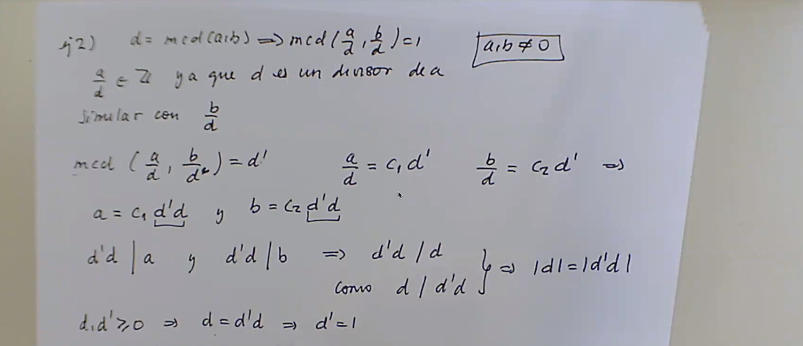 ej 2) d = mcd(a,b) ⟹ mcd(a/d, b/d) = 1 a,b ≠ 0
a/d ∈ ℤ ya que d es un divisor de a
Similar con b/d
mcd (a/d, b/d) = d' a/d = c₁d' b/d = c₂d' ⟹
a = c₁ d'd y b = c₂ d'd
d'd | a y d'd | b ⟹ d'd / d
como d / d'd } ⟹ |d| = |d'd|
d,d' ⩾ 0 ⟹ d = d'd ⟹ d' = 1